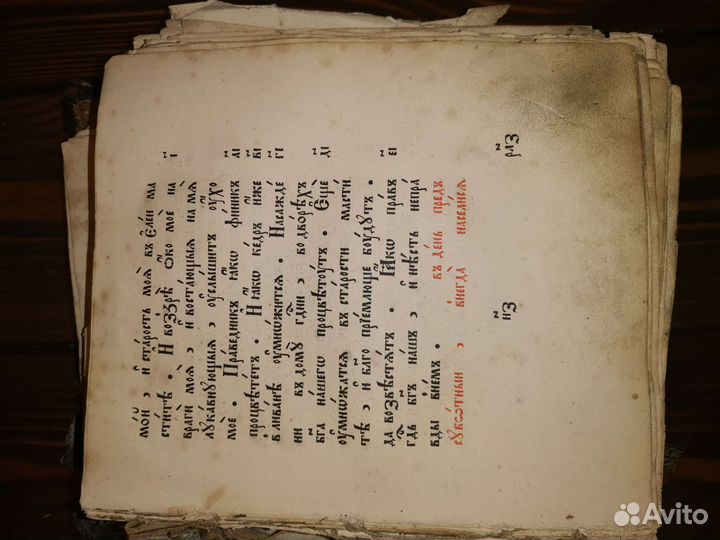 мо́й , и҆ ста́рость моѧ̀ въ є҆ле́и ма
стите . И҆ воззрѣ̀ ѻ҆́ко моѐ на і҃
врагѝ моѧ̀ , и҆ востаю́щыѧ на мѧ̀
лꙋка́внꙋющыѧ , оу҆слы́шитъ оу҆́хо
моѐ . Пра́ведникъ ꙗ҆́кѡ фи́никъ а҃і
процвѣте́тъ . И҆ ꙗ҆́кѡ ке́дръ и҆́же в҃і
в лива́нѣ оу҆мно́житсѧ . Насажде г҃і
ни въ домꙋ̀ гдⷭ҇ни , во дво́рѣхъ
бг҃а на́шегѡ процвѣтꙋ́тъ . Є҆щѐ д҃і
оу҆мно́жатсѧ въ ста́рости масти
тѣ , и҆ бл҃го прїе́млюще бꙋ́дꙋтъ .
да возвѣстѧ́тъ . Ꙗ҆́кѡ пра́въ є҃і
гдⷭ҇ь бг҃ъ на́шъ , и҆ нѣ́сть непра́
вды в не́мъ .
въ де́нь пре́дъ
сꙋббѡ́тный , внегда̀ населе́нѧ
н҃з
рл҃з
Avito